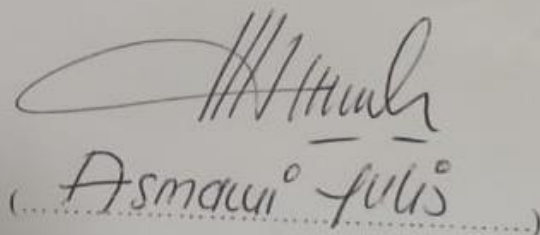 (Asmawi Yulis)